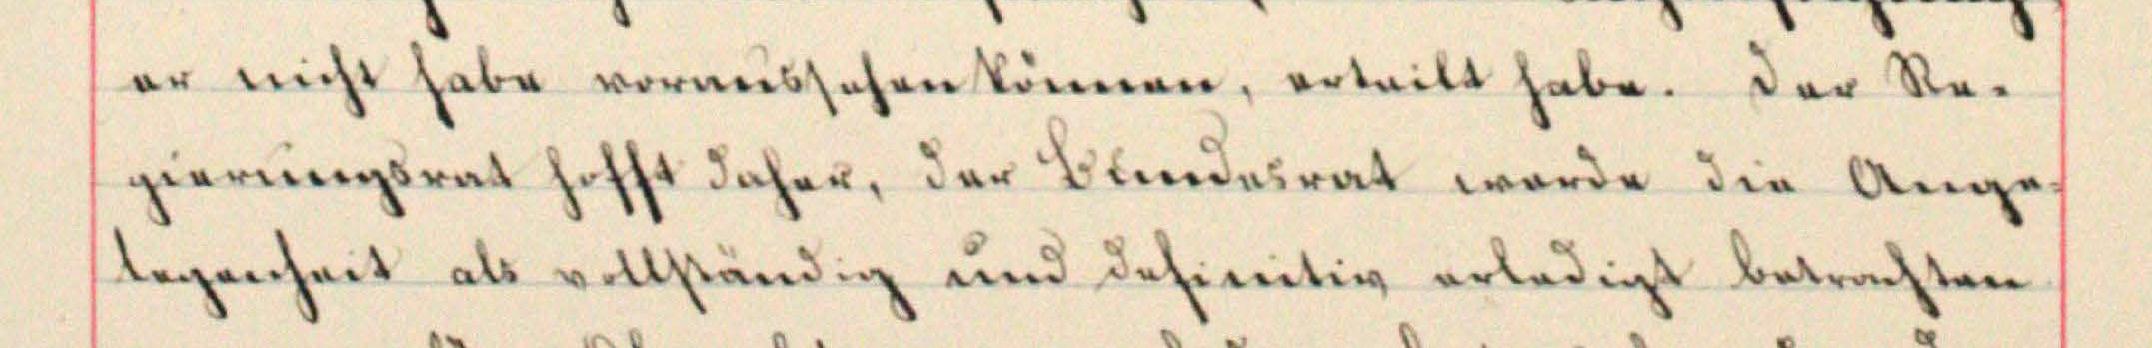 er nicht habe voraussehen können, erteilt habe. Der Re-
gierungsrat hofft daher, der Bundesrat werde die Ange-
legenheit als vollständig und definitiv erledigt betrachten